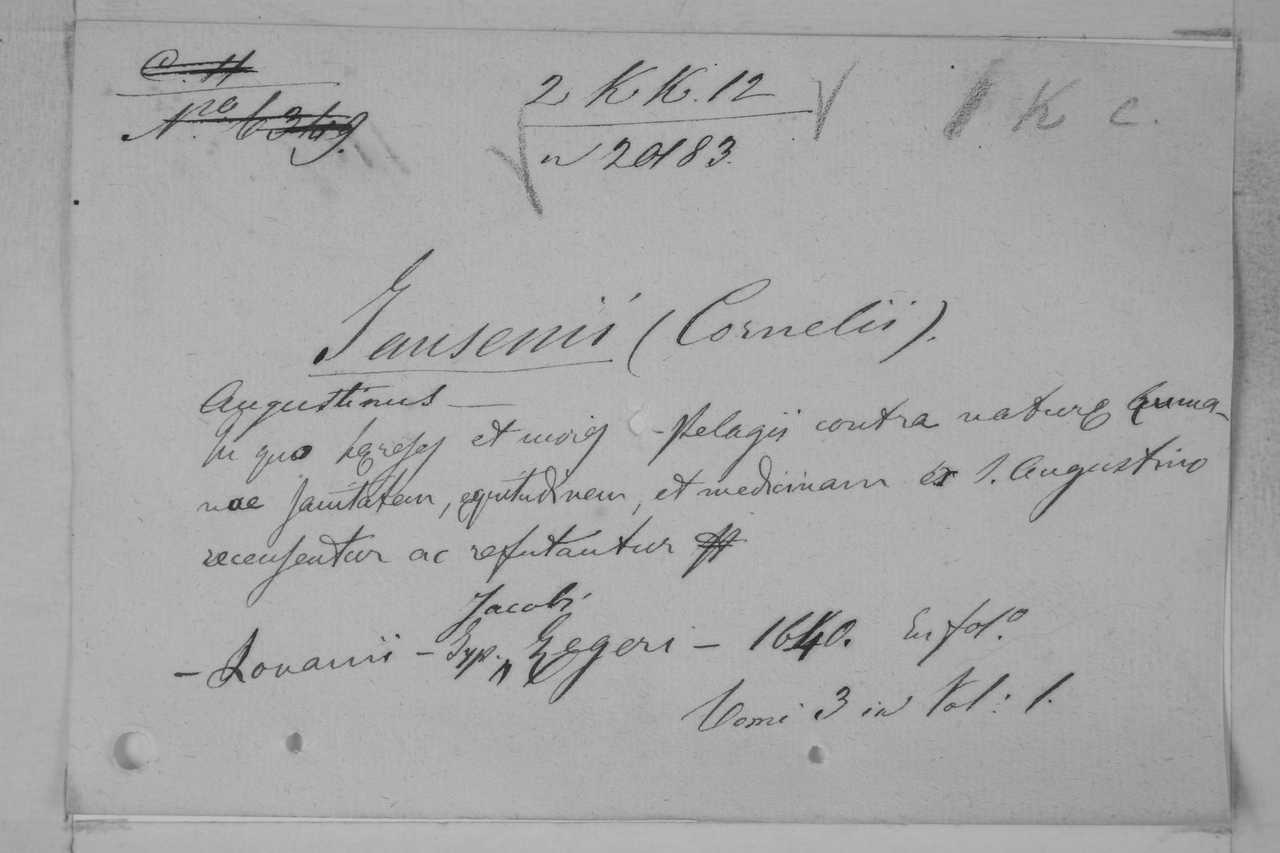 C. H
2 K K. 12
1 K c.
N.ro 6349.
n 20183.
Jansenii (Cornelii).
Augustinus —
In quo hęreses et mores Pelagii contra naturę huma-
nae sanitatem, ęgritudinem, et medicinam ex S. Augustino
recensentur ac refutantur
Jacobi
— Lovanii — Typ. Zegeri — 1640. In fol.o
Tomi 3 in Vol: 1.